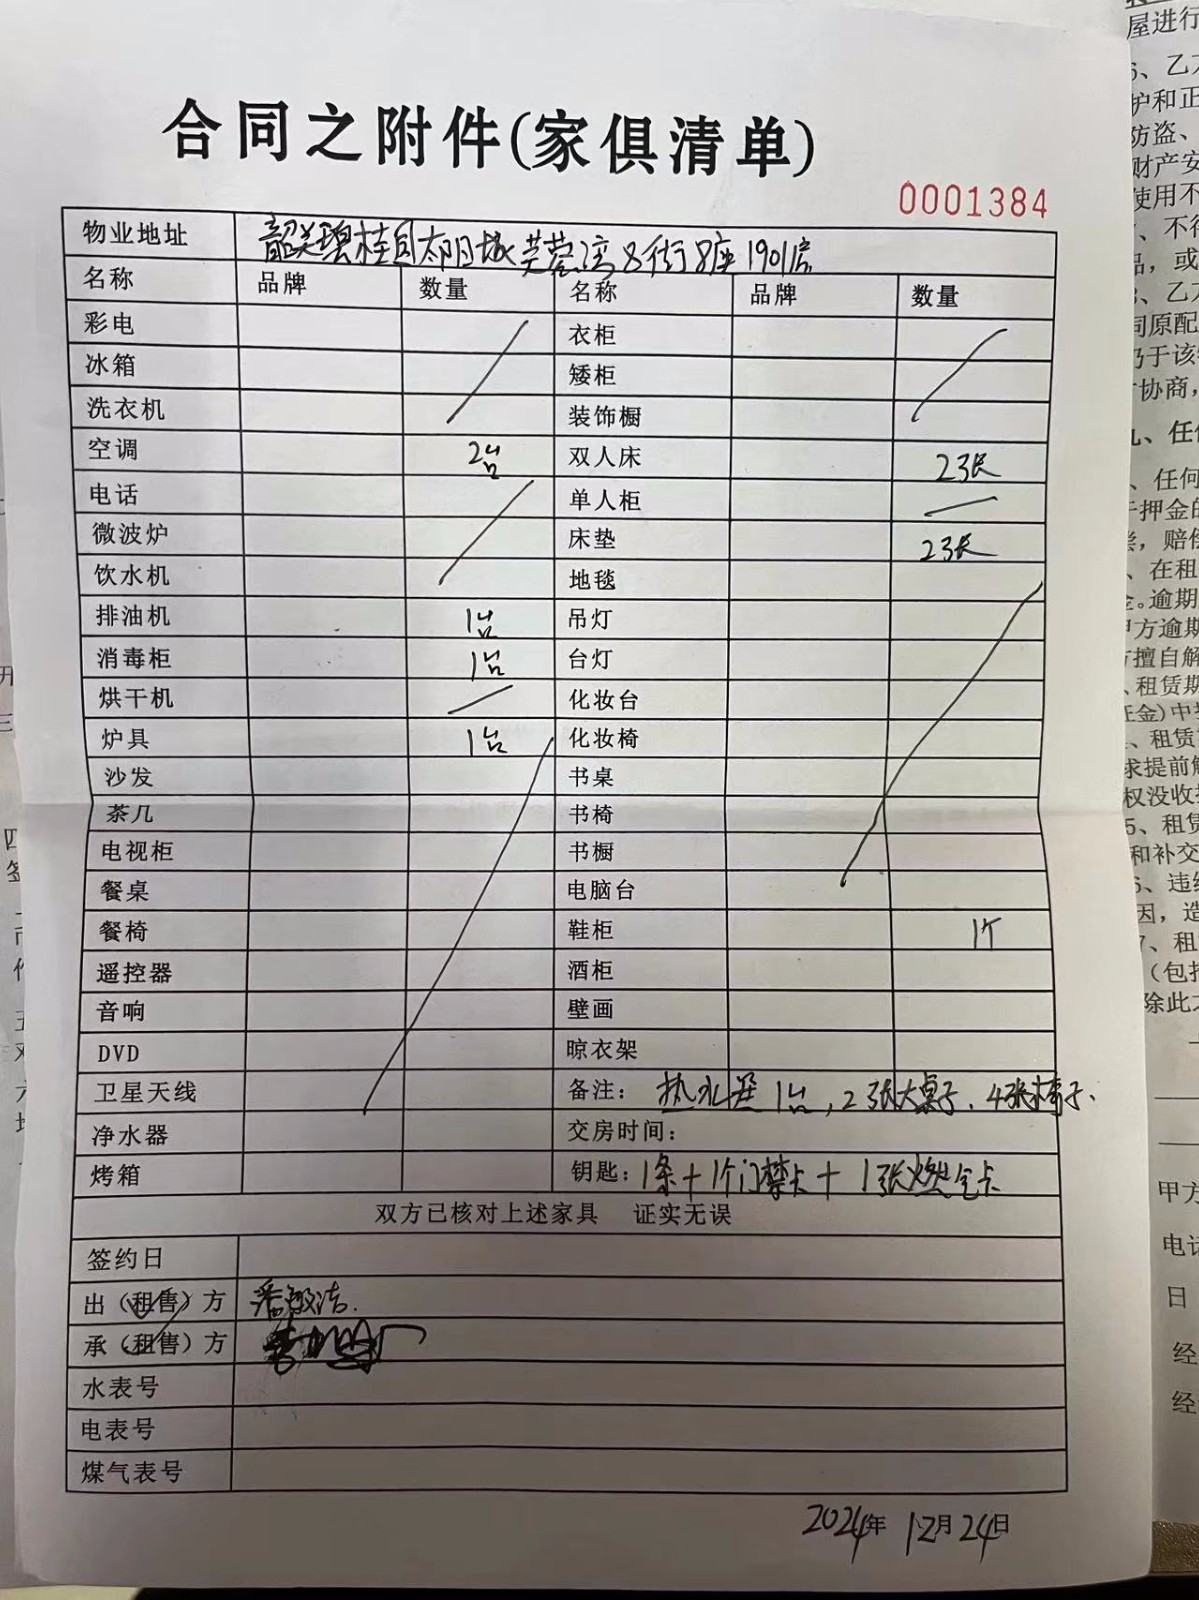 合同之附件(家俱清单)
0001384
物业地址 韶关碧桂园太阳城芙蓉湾8街8座1901房
名称 品牌 数量 名称 品牌 数量
彩电 衣柜
冰箱 矮柜
洗衣机 装饰橱
空调 2台 双人床 2张
电话 单人柜
微波炉 床垫 2张
饮水机 地毯
排油机 1台 吊灯
消毒柜 1台 台灯
烘干机 化妆台
炉具 1台 化妆椅
沙发 书桌
茶几 书椅
电视柜 书橱
餐桌 电脑台
餐椅 鞋柜 1个
遥控器 酒柜
音响 壁画
DVD 晾衣架
卫星天线 备注: 热水器1台,2张大桌子、4张椅子、
净水器 交房时间:
烤箱 钥匙: 1条+1个门禁卡+1张燃气卡
双方已核对上述家具 证实无误
签约日
出(租售)方 潘敏洁.
承(租售)方
水表号
电表号
煤气表号
2024年12月24日
屋进行
6、乙方
护和正
防盗、
财产安
使用不
、不得
品,或
8、乙方
同原配
乃于该
协商,
九、任何
、任何
押金的
赔偿
、在租
金。逾期
甲方逾期
方擅自解
、租赁期
证金)中
、租赁
求提前解
权没收
5、租赁
和补交
6、违约
因,造
7、租
(包括
除此之
甲方
电话
日
经
经